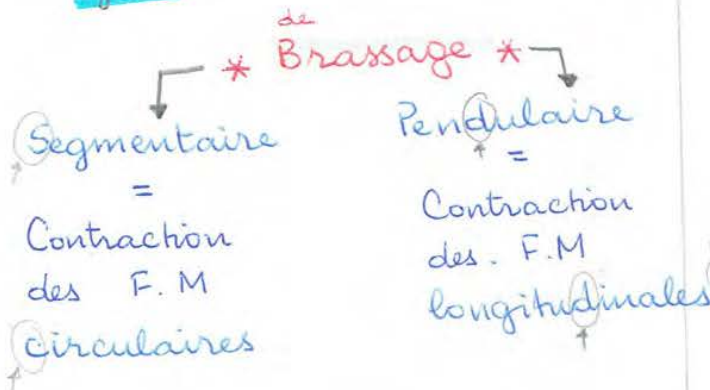 de
* Brassage *
Segmentaire
=
Contraction
des F.M
circulaires
Pendulaire
=
Contraction
des. F.M
longitudinales